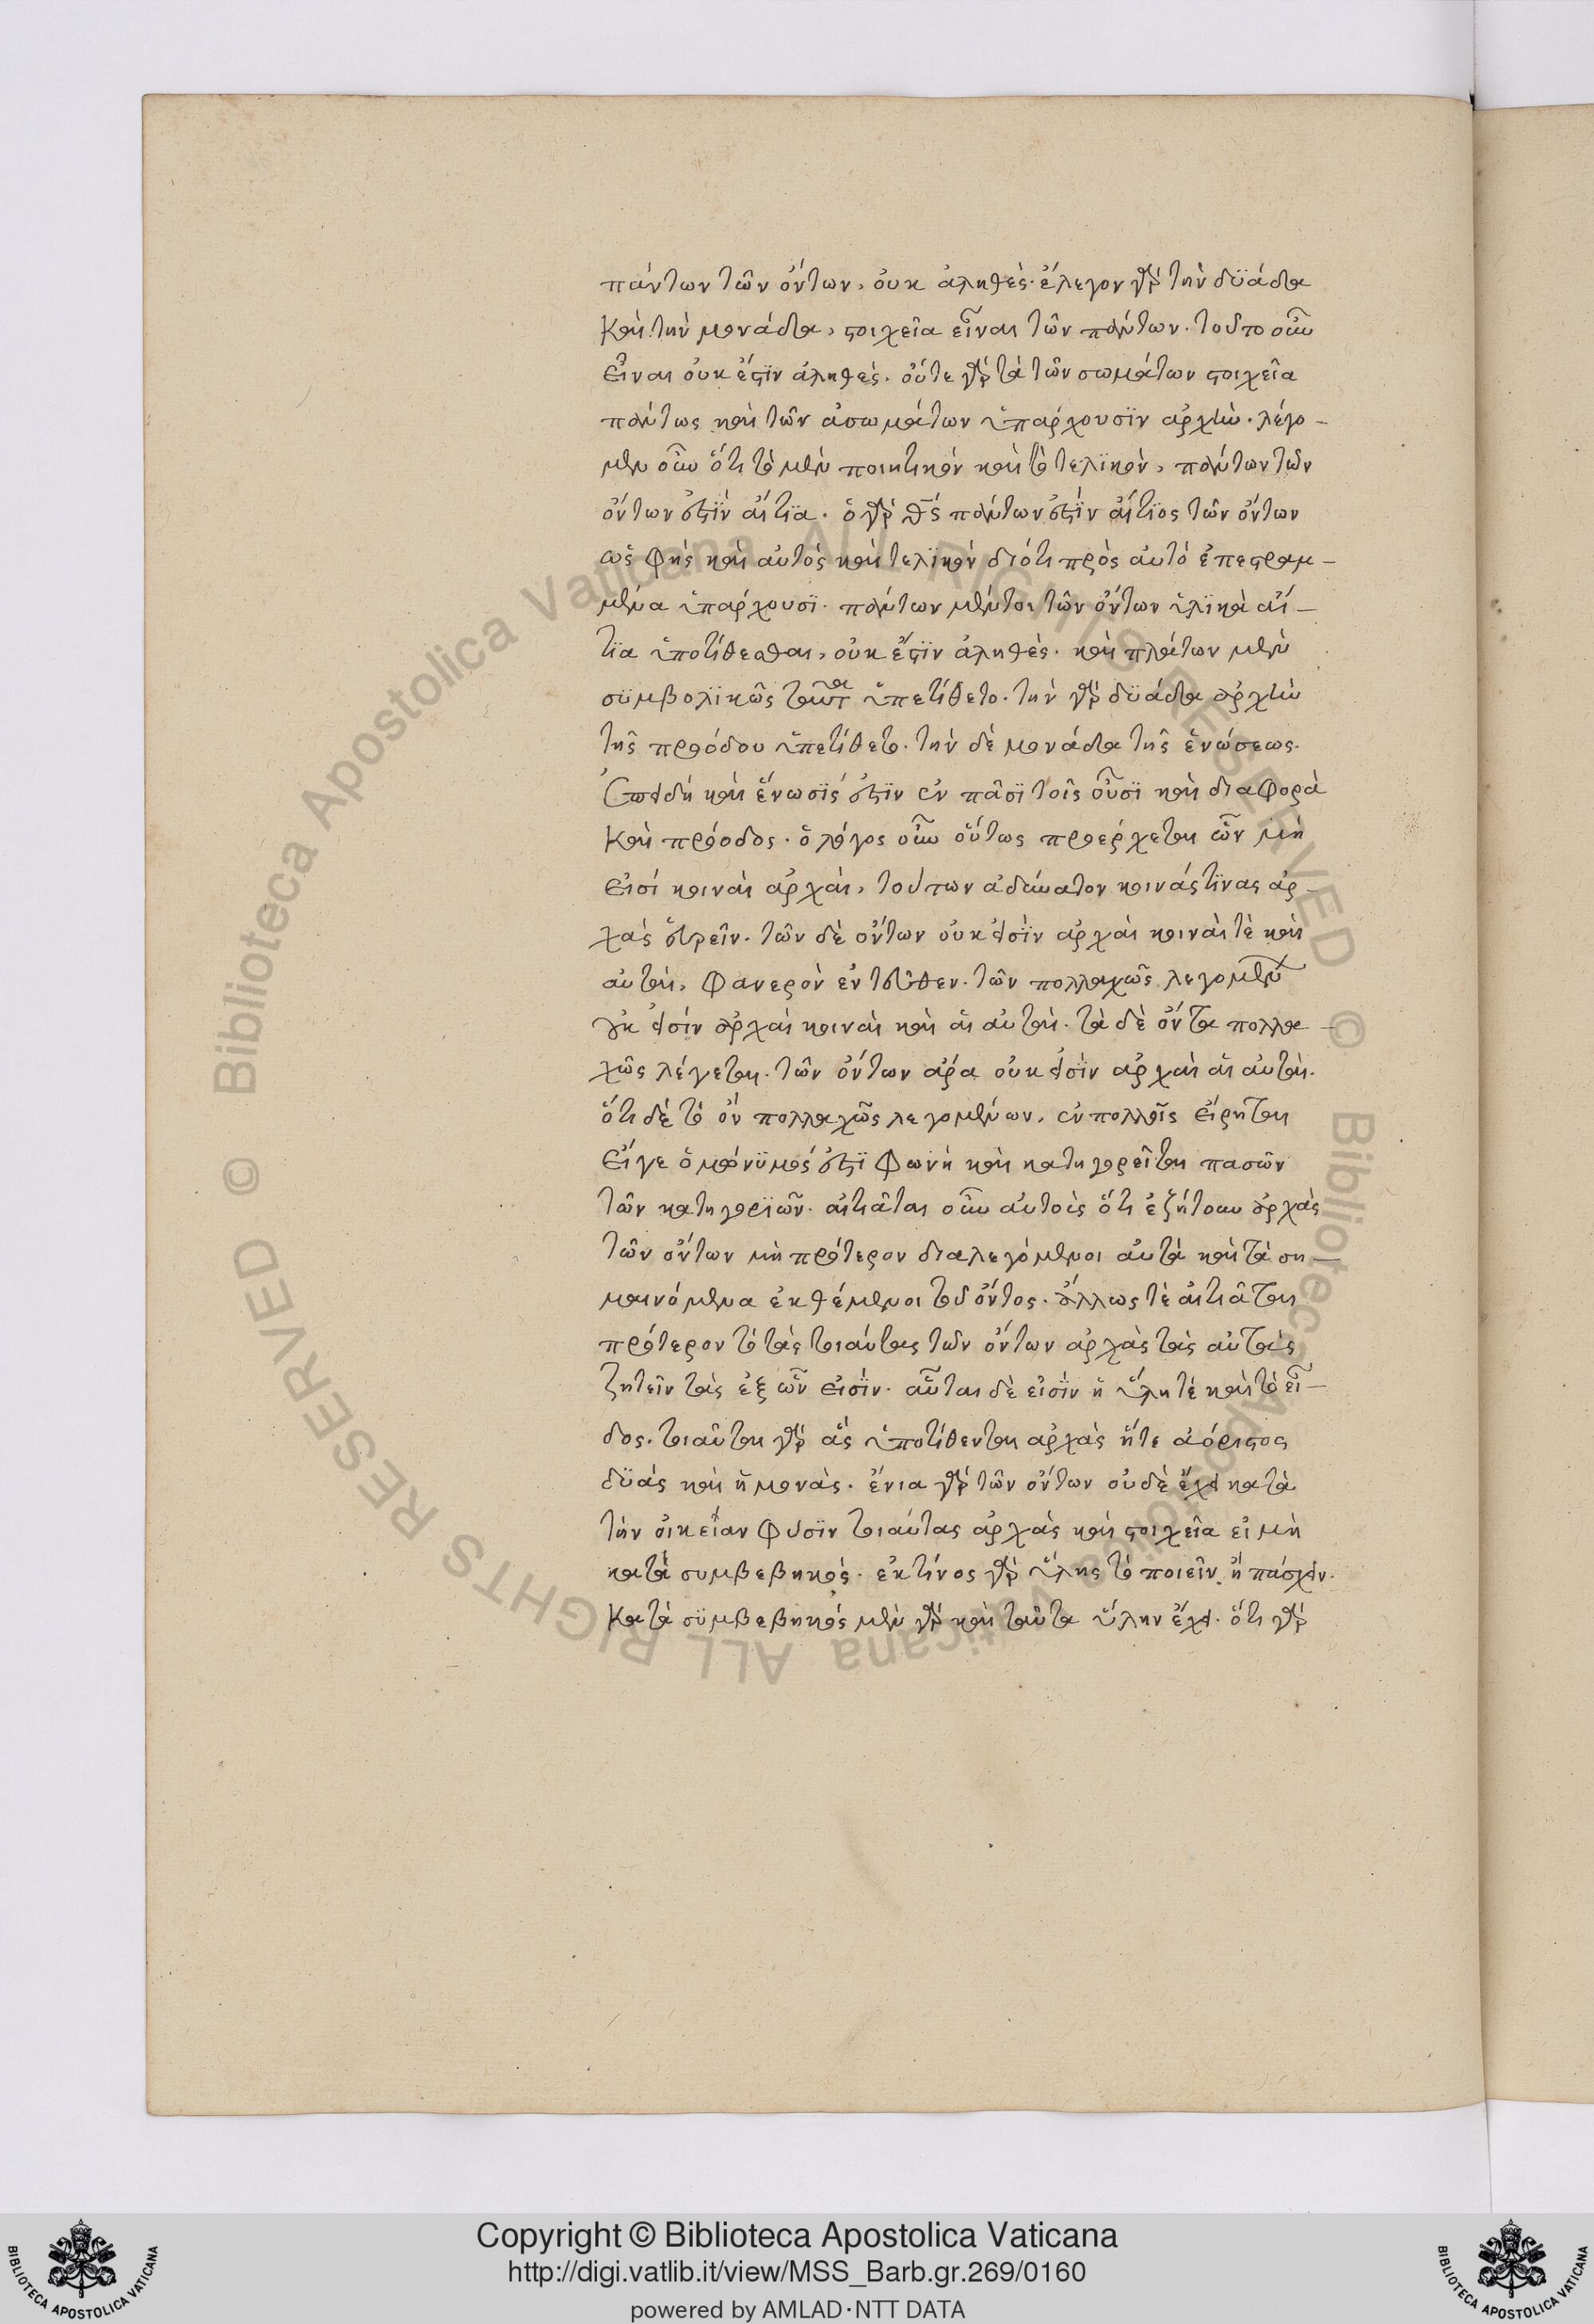 πάντων τῶν ὄντων, οὐκ ἀληθές. ἔλεγον γὰρ τὴν δϋάδα
Καὶ τὴν μονάδα, στοιχεῖα εἶναι τῶν πάντων. τοῦτο οὖν
εἶναι οὐκ ἔστϊν ἀληθές. οὔτε γὰρ τὰ τῶν σωμάτων στοιχεῖα
πάντως καὶ τῶν ἀσωμάτων ὑπάρχουσϊν ἀρχὴν. λέγο-
μεν οὖν ὅτι τὸ μὲν ποιητικὸν καὶ τὸ τελϊκὸν, πάντων τῶν
ὄντων ἐστϊν αἴτϊα. ὁ γὰρ θς πάντων ἐστϊν αἴτϊος τῶν ὄντων
ὡς φὴς καὶ αὐτὸς καὶ τελϊκὸν διότι πρὸς αὐτὸ ἐπεστραμ-
μένα ὑπάρχουσϊ. πάντων μέντοι τῶν ὄντων ὑλϊκὰ αἴ-
τϊα ὑποτίθεσθαι, οὐκ ἔστϊν ἀληθές. καὶ πλάτων μὲν
σϋμβολϊκῶς ταῦτα ὑπετίθετο. τὴν γὰρ δϋάδα ἀρχὴν
τῆς προόδου ὑπετίθετο. τὴν δὲ μονάδα τῆς ἑνώσεως.
Ἐπειδὴ καὶ ἕνωσϊς ἐστϊν ἐν πᾶσϊ τοῖς οὖσϊ καὶ διαφορὰ
Καὶ πρόοδος. ὁ λόγος οὖν οὕτως προέρχεται ὧν μὴ
εἰσὶ κοιναὶ ἀρχαὶ, τούτων ἀδύνατον κοινάς τϊνας ἀρ-
χὰς εὑρεῖν. τῶν δὲ ὄντων οὐκ εἰσϊν ἀρχαὶ κοιναὶ τὲ καὶ
αὐταὶ, φανερὸν ἐντεῦθεν. τῶν πολλαχῶς λεγομένων
οὐκ εἰσὶν ἀρχαὶ κοιναὶ καὶ αἱ αὐταὶ. τὰ δὲ ὄντα πολλα-
χῶς λέγεται. τῶν ὄντων ἄρα οὐκ εἰσϊν ἀρχαὶ αἱ αὐταὶ.
ὅτι δὲ τὸ ὂν πολλαχῶς λεγομένων, ἐν πολλοῖς εἴρηται
εἴγε ὁμώνϋμός ἐστϊ φωνὴ καὶ κατηγορεῖται πασῶν
τῶν κατηγορϊῶν. αἰτιᾶται οὖν αὐτοὶς ὅτι ἐζήτουν ἀρχὰς
τῶν ὄντων μὴ πρότερον διαλεγόμενοι αὐτὰ καὶ τὰ ση-
μαινόμενα ἐκθέμενοι τοῦ ὄντος. ἄλλως τὲ αἰτιᾶται
πρότερον τὸ τὰς τοιαύτας τῶν ὄντων ἀρχὰς τὰς αὐτὰς
ζητεῖν τὰς ἐξ ὧν εἰσϊν. αὗται δὲ εἰσϊν ἡ ὕλη τὲ καὶ τὸ εἶ-
δος. τοιαῦται γὰρ ἃς ὑποτίθενται ἀρχὰς ἥτε ἀόριστος
δϋὰς καὶ ἡ μονὰς. ἔνια γὰρ τῶν ὄντων οὐδὲ ἔχει κατὰ
τὴν οἰκείαν φύσϊν τοιαύτας ἀρχὰς καὶ στοιχεῖα εἰ μὴ
κατὰ συμβεβηκός. ἐκ τίνος γὰρ ὕλης τὸ ποιεῖν ἢ πάσχειν.
Κατὰ σϋμβεβηκὸς μὲν γὰρ καὶ ταῦτα ὕλην ἔχει. ὅτι γὰρ
© Biblioteca Apostolica Vaticana ALL RIGHTS RESERVED
© Biblioteca Apostolica Vaticana ALL RIGHTS RESERVED
Copyright © Biblioteca Apostolica Vaticana
http://digi.vatlib.it/view/MSS_Barb.gr.269/0160
powered by AMLAD·NTT DATA
BIBLIOTECA APOSTOLICA VATICANA
BIBLIOTECA APOSTOLICA VATICANA